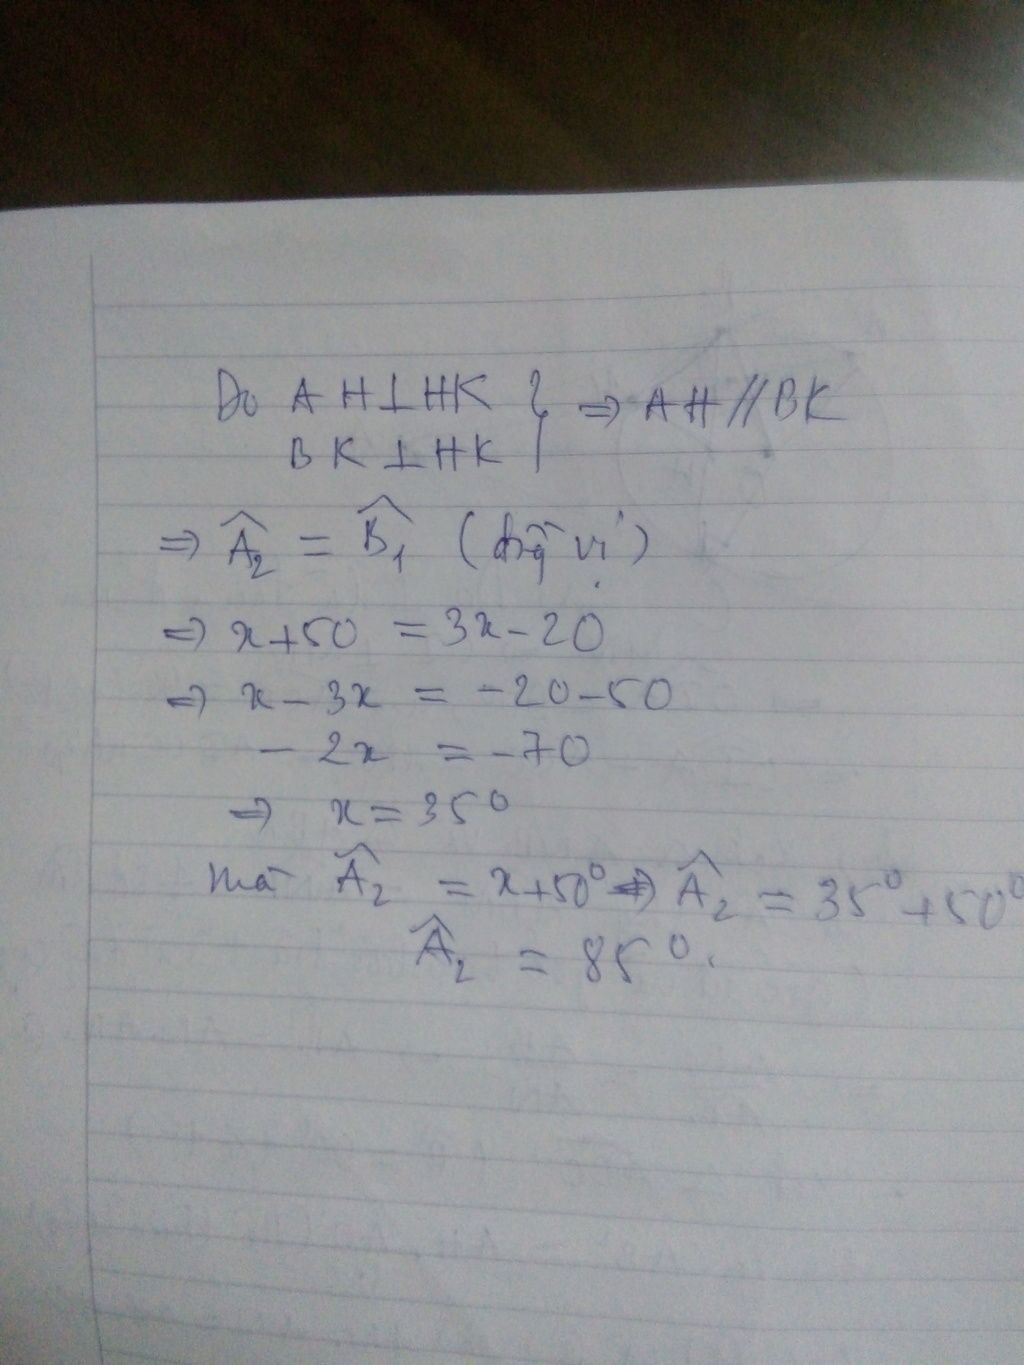 Do AH⊥HK } ⇒ AH//BK
BK⊥HK
⇒ Â₂ = B̂₁ (đồng vị)
⇒ x+50 = 3x-20
⇒ x-3x = -20-50
-2x = -70
⇒ x = 35°
mà Â₂ = x+50° ⇒ Â₂ = 35°+50°
Â₂ = 85°.